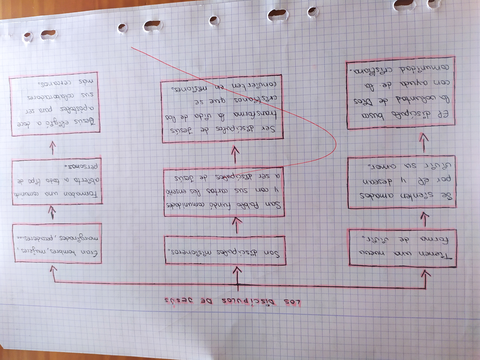 LOS DISCÍPULOS DE JESÚS
Tienen una nueva
forma de vivir.
Se sienten amados
por él y desean
vivir su amor.
El discípulo busca
la voluntad de Dios
con ayuda de la
comunidad cristiana.
Son discípulos misioneros.
San Pablo fundó comunidades
y con sus cartas les enseñó
a ser discípulos de Jesús
Ser discípulos de Jesús
transforma la vida de los
cristianos que se
convierten en misioneros.
Eran hombres, mujeres,
marginados, pecadores,...
Formaban una comunidad
abierta a todo tipo de
personas.
Jesús eligió a doce
apóstoles para ser
sus colaboradores
más cercanos.